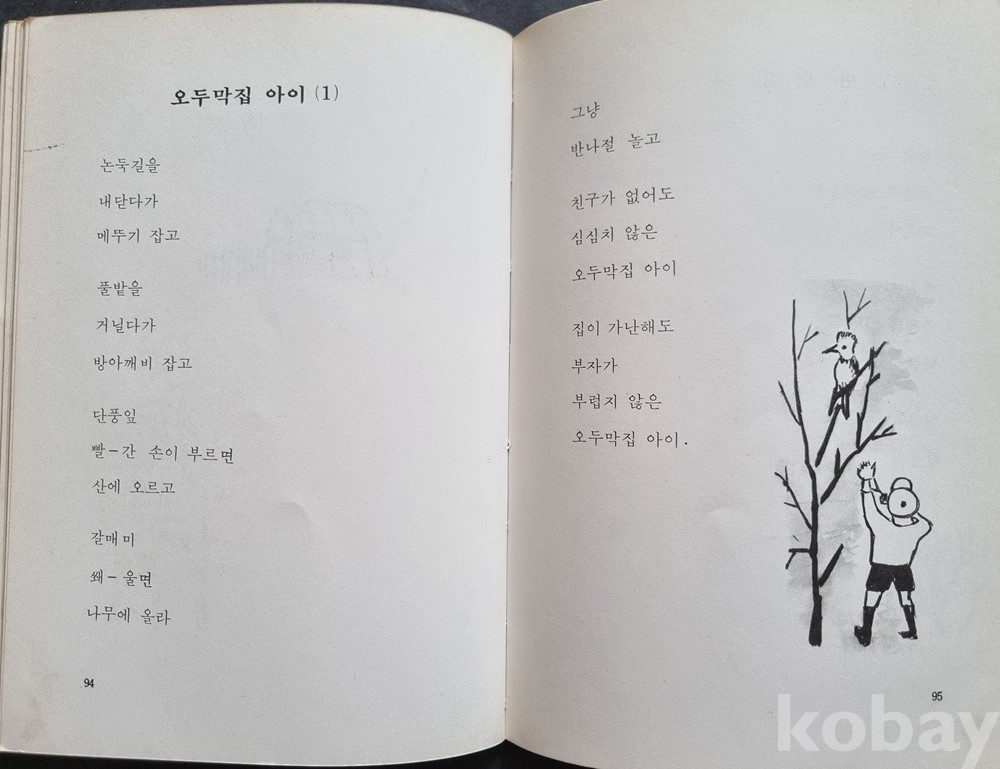 오두막집 아이 (1)
논둑길을
내닫다가
메뚜기 잡고
풀밭을
거닐다가
방아깨비 잡고
단풍잎
빨-간 손이 부르면
산에 오르고
잘매미
쐐-울면
나무에 올라
94
그냥
반나절 놀고
친구가 없어도
심심치 않은
오두막집 아이
집이 가난해도
부자가
부럽지 않은
오두막집 아이.
95
kobay